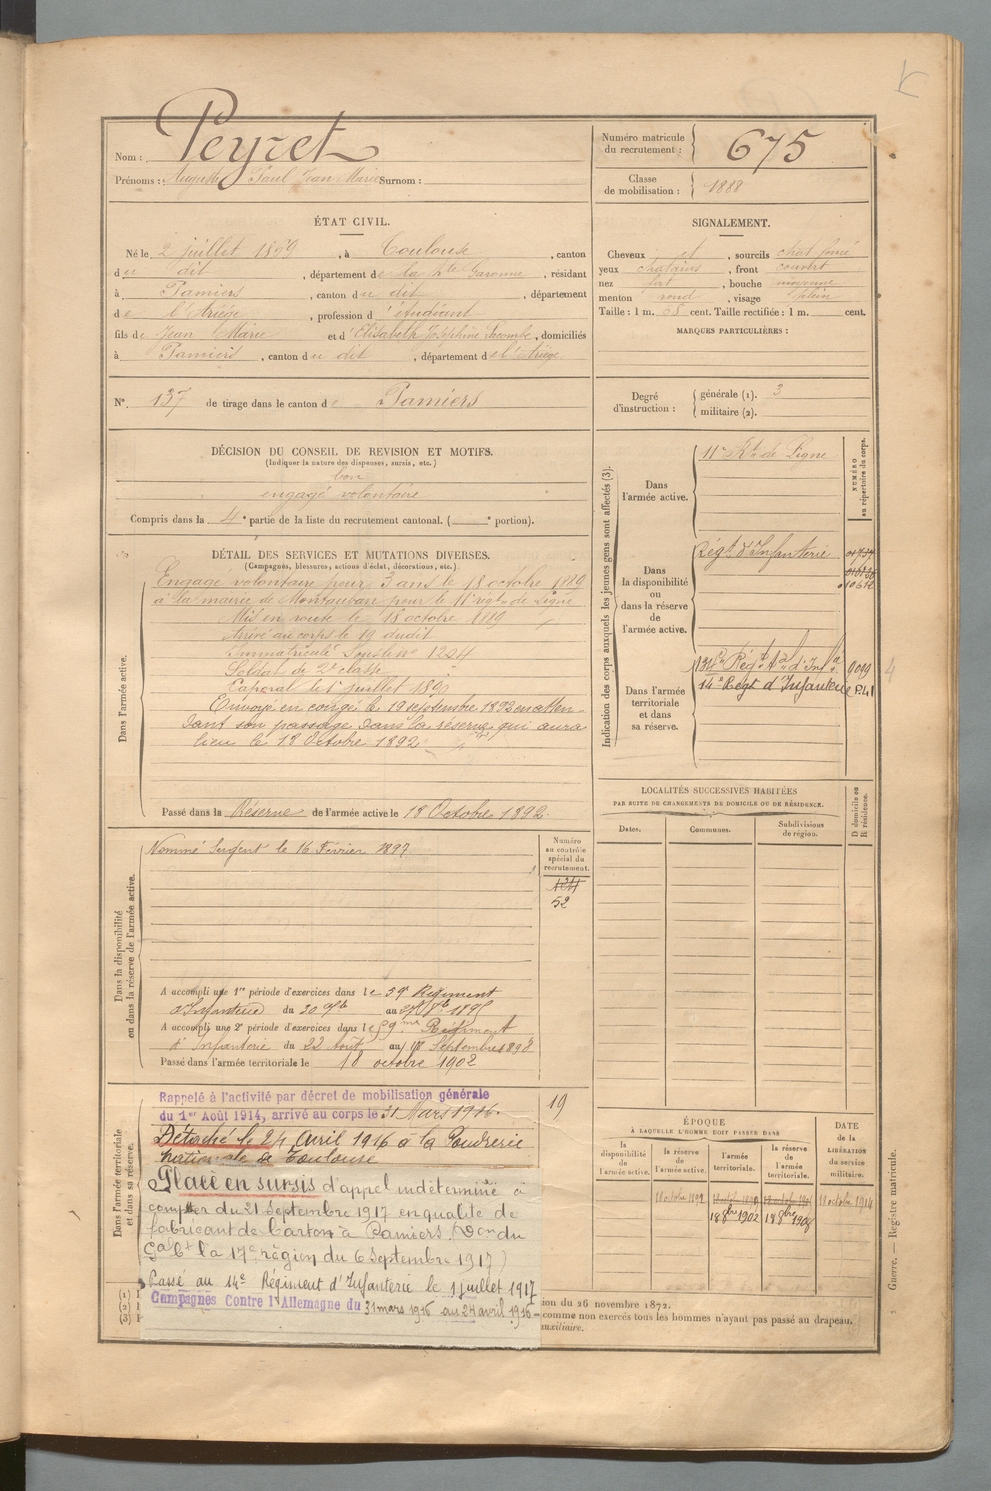 Nom : Peyret
Prénoms : Auguste Paul Jean Marie Surnom :
Numéro matricule du recrutement : 675
Classe de mobilisation : 1888
ÉTAT CIVIL.
Né le 2 juillet 1869, à Toulouse, canton
du dit, département de la Hte Garonne, résidant
à Pamiers, canton du dit, département
de l'Ariège, profession d'étudiant
fils de Jean Marie et d'Elisabeth Joséphine Lacombe, domiciliés
à Pamiers, canton du dit, département de l'Ariège
SIGNALEMENT.
Cheveux et, sourcils chat foncé
yeux chatains, front couvert
nez fort, bouche moyenne
menton rond, visage plein
Taille : 1 m. 68 cent. Taille rectifiée : 1 m. cent.
MARQUES PARTICULIÈRES :
N° 137 de tirage dans le canton de Pamiers
Degré d'instruction : générale (1). 3
militaire (2).
DÉCISION DU CONSEIL DE REVISION ET MOTIFS.
(Indiquer la nature des dispenses, sursis, etc.)
bon
engagé volontaire
Compris dans la 4e partie de la liste du recrutement cantonal. ( e portion).
DÉTAIL DES SERVICES ET MUTATIONS DIVERSES.
(Campagnes, blessures, actions d'éclat, décorations, etc.)
Dans l'armée active.
Engagé volontaire pour 3 ans le 18 octobre 1889
à la mairie de Montauban pour le 11e régt de Ligne
Mis en route le 18 octobre 1889
Arrivé au corps le 19 dudit
Immatriculé sous le no 1204
Soldat de 2e classe
Caporal le 1er juillet 1890
Envoyé en congé le 19 septembre 1892 en atten-
dant son passage dans la réserve qui aura
lieu le 18 Octobre 1892
Passé dans la Réserve de l'armée active le 18 Octobre 1892.
Dans la disponibilité ou dans la réserve de l'armée active.
Nommé Sergent le 16 Février 1897
Numéro au contrôle spécial du recrutement.
52
A accompli une 1re période d'exercices dans le 59e Régiment
d'Infanterie du 20 7bre au 1895
A accompli une 2e période d'exercices dans le 59me Régiment
d'Infanterie du 22 Août au Septembre 1898
Passé dans l'armée territoriale le 18 octobre 1902
Dans l'armée territoriale et dans sa réserve.
Rappelé à l'activité par décret de mobilisation générale
du 1er Août 1914, arrivé au corps le 31 Mars 1916.
19
Détaché le 24 Avril 1916 à la Poudrerie
nationale de Toulouse
Placé en sursis d'appel indéterminé à
compter du 21 Septembre 1917 en qualité de
fabricant de Carton à Pamiers (Don du
Gal Ct la 17e région du 6 Septembre 1917)
Passé au 14e Régiment d'Infanterie le 1 juillet 1917
Campagnes Contre l'Allemagne du 31 mars 1916 au 24 avril 1916
(1)
(2)
(3)
ion du 26 novembre 1872.
comme non exercés tous les hommes n'ayant pas passé au drapeau.
auxiliaire.
Indication des corps auxquels les jeunes gens sont affectés (3).
NUMÉRO au répertoire du corps.
Dans l'armée active.
11e Rt de Ligne
Dans la disponibilité ou dans la réserve de l'armée active.
Régt d'Infanterie
Dans l'armée territoriale et dans sa réserve.
134e Régt Al d'Infie 9099
14e Régt d'Infanterie P.41
4
LOCALITÉS SUCCESSIVES HABITÉES
PAR SUITE DE CHANGEMENTS DE DOMICILE OU DE RÉSIDENCE.
D domicile ou R résidence.
Dates. Communes. Subdivisions de région.
ÉPOQUE
À LAQUELLE L'HOMME DOIT PASSER DANS
la disponibilité de l'armée active.
la réserve de l'armée active.
l'armée territoriale.
la réserve de l'armée territoriale.
DATE de la LIBÉRATION du service militaire.
18 octobre 1892
18 8bre 1902 18 8bre 1908
18 octobre 1914
Guerre. — Registre matricule.